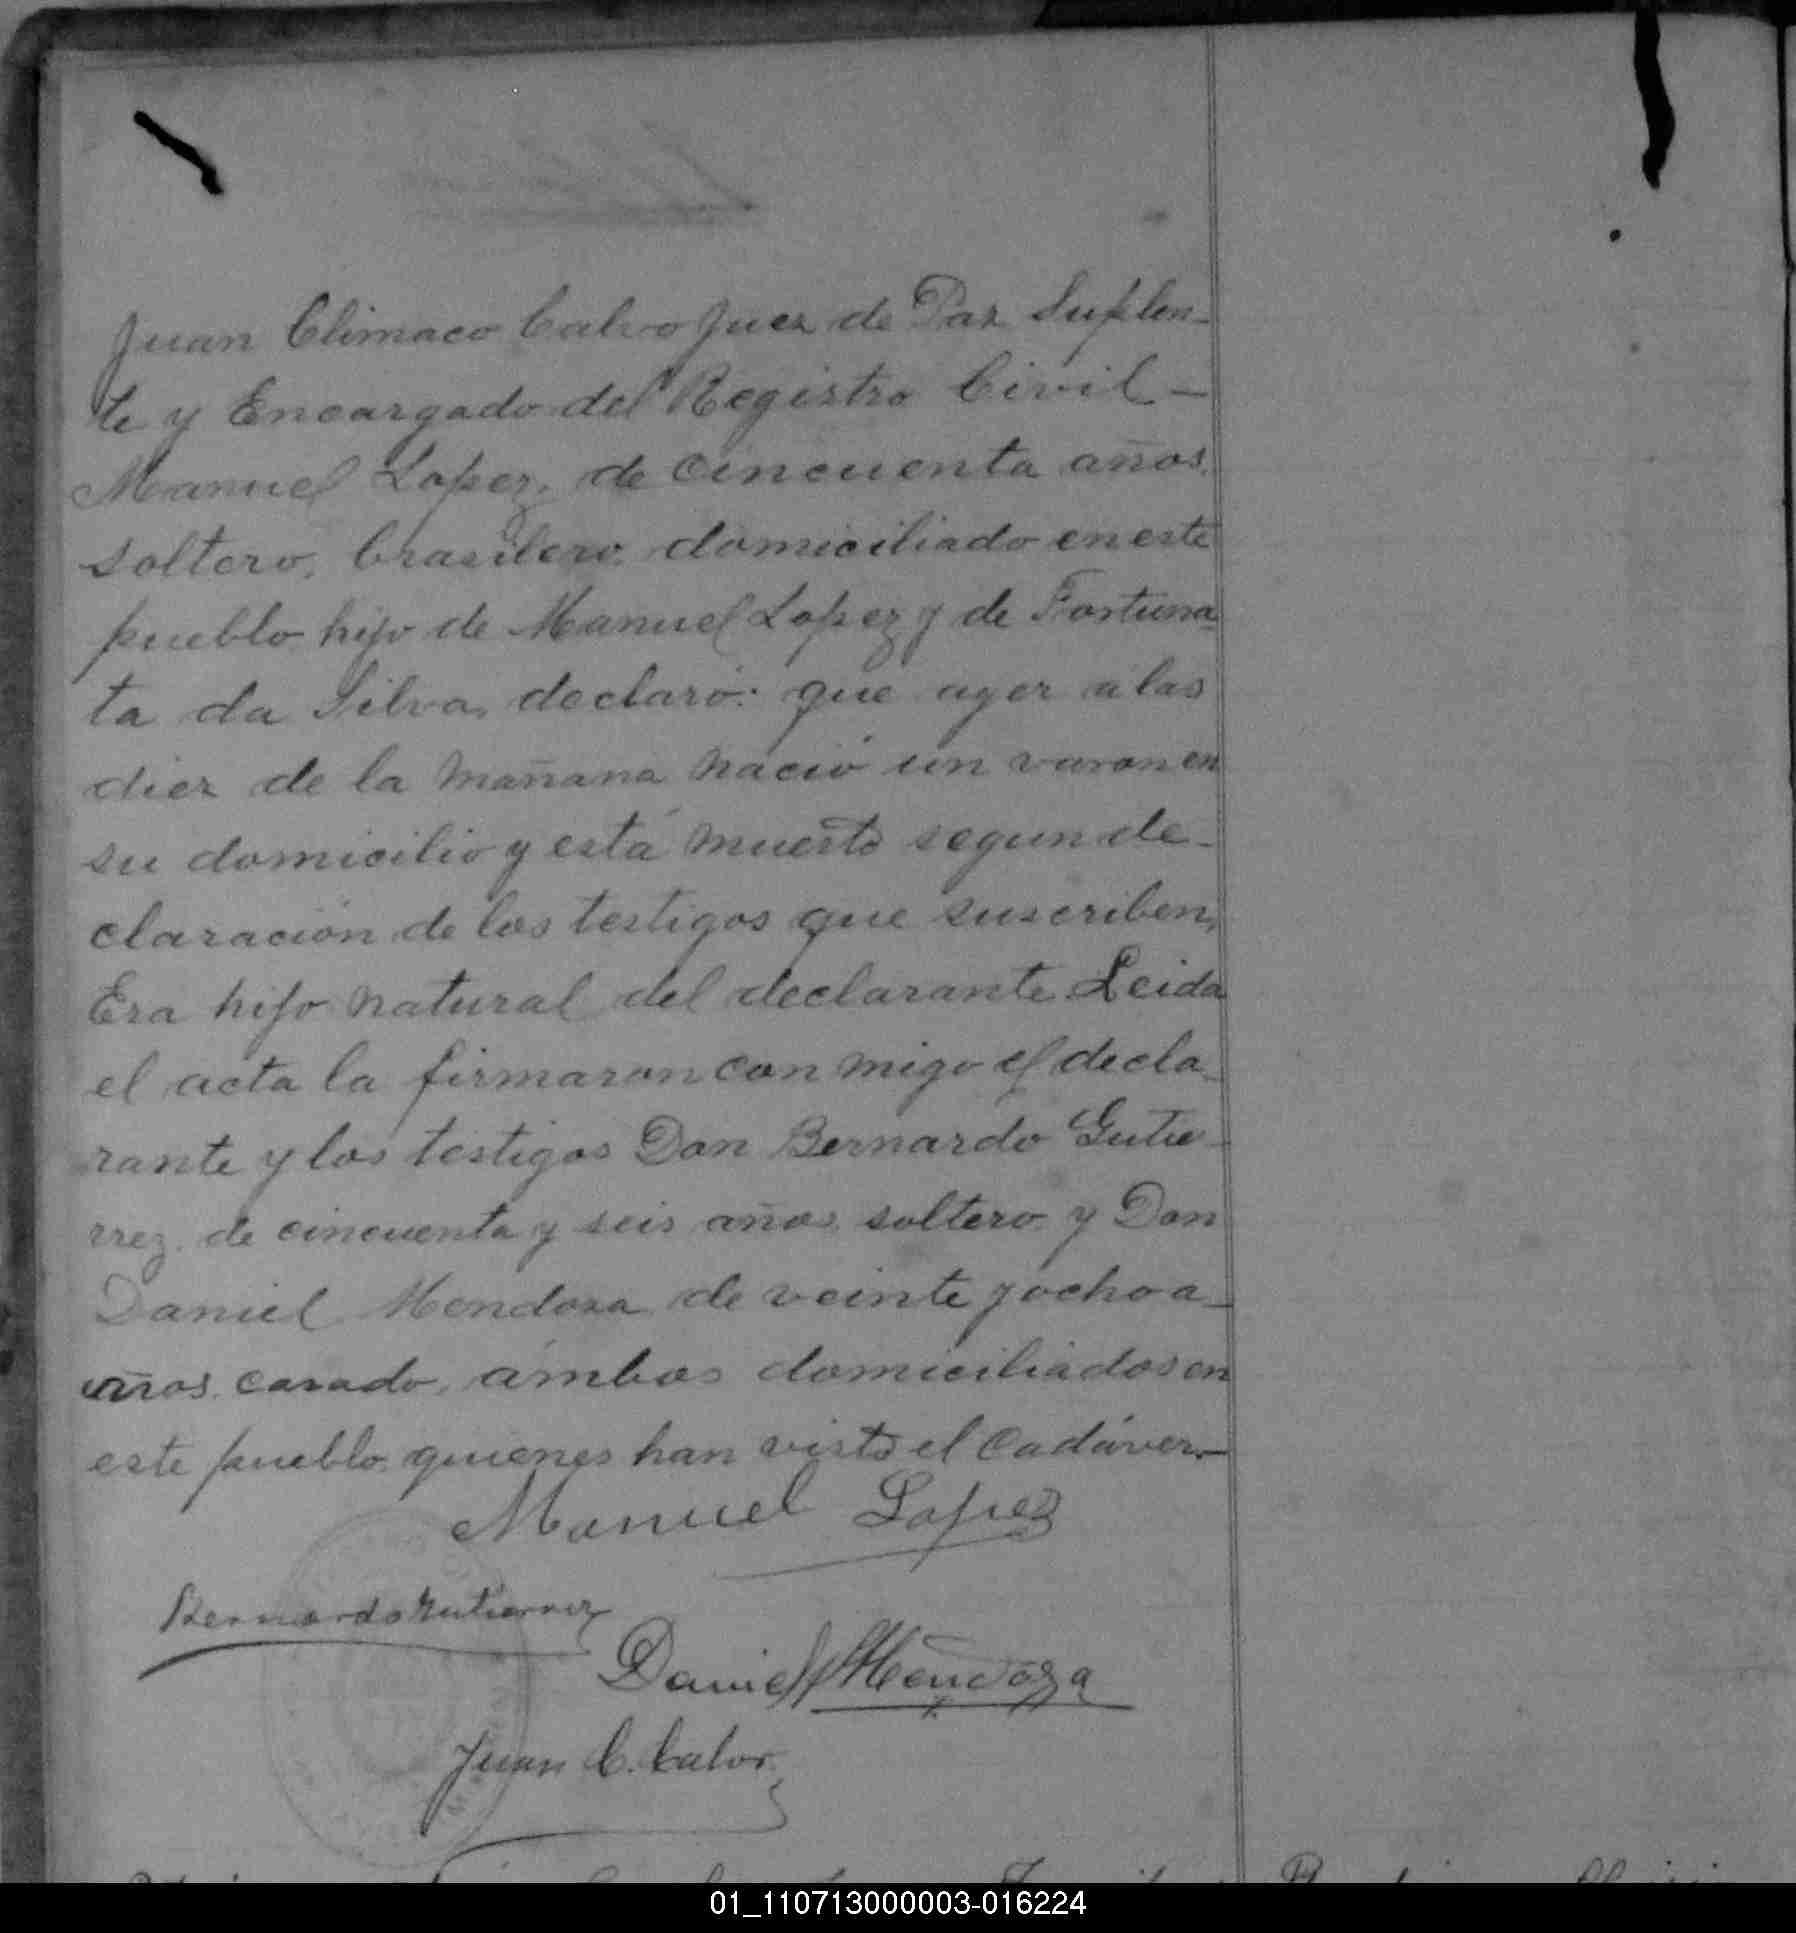 Juan Climaco Calvo Juez de Paz Suplen-
te y Encargado del Registro Civil -
Manuel Lopez, de cincuenta años,
soltero, brasilero, domiciliado en este
pueblo hijo de Manuel Lopez y de Fortuna-
ta da Silva, declaró: que ayer a las
diez de la mañana nació un varon en
su domicilio y está muerto segun de-
claración de los testigos que suscriben,
Era hijo natural del declarante Leida
el acta la firmaron con migo el decla-
rante y los testigos Don Bernardo Gutie-
rrez, de cincuenta y seis años, soltero y Don
Daniel Mendoza de veinte y ocho a-
años, casado, ámbos domiciliados en
este pueblo, quienes han visto el cadáver.-
Manuel Lopez
Bernardo Gutierrez
Daniel Mendoza
Juan C. Calvo
01_110713000003-016224